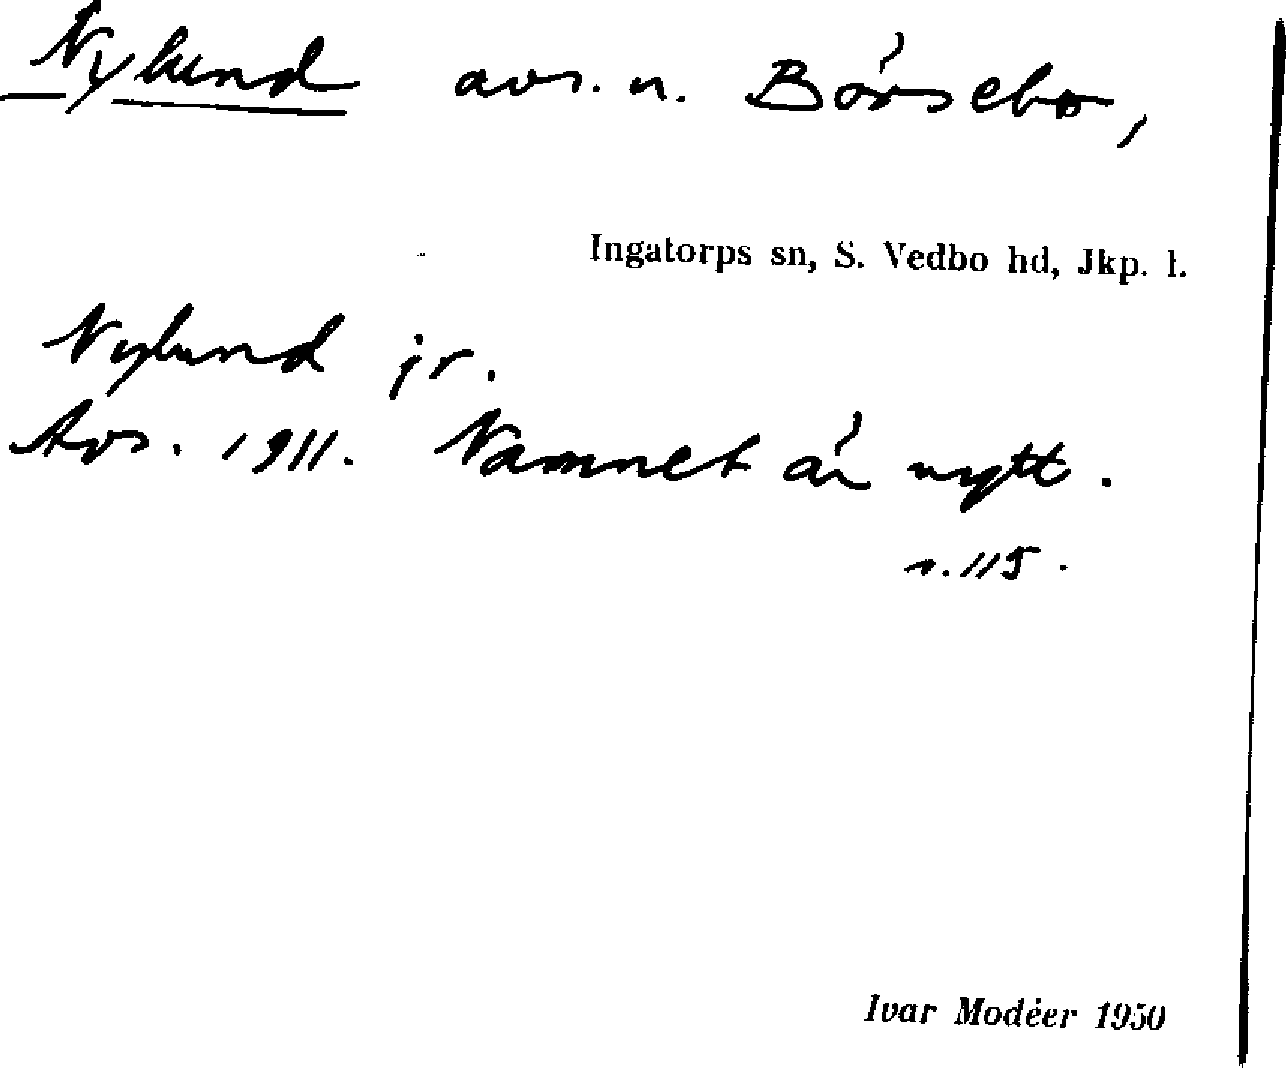 Nylund avs. u. Börsebo,
Ingatorps sn, S. Vedbo hd, Jkp. l.
Nylund jr.
Avs. 1911. Namnet är nytt.
s. 115.
Ivar Modéer 1950